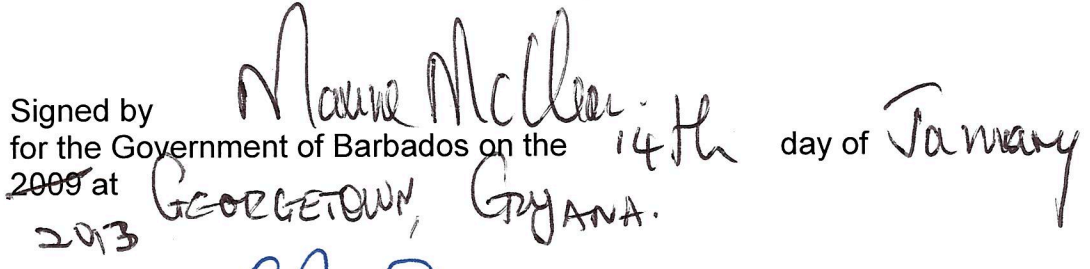 Signed by Maxine McClean
for the Government of Barbados on the 14th day of January
2009 at GEORGETOWN, GUYANA.
2013